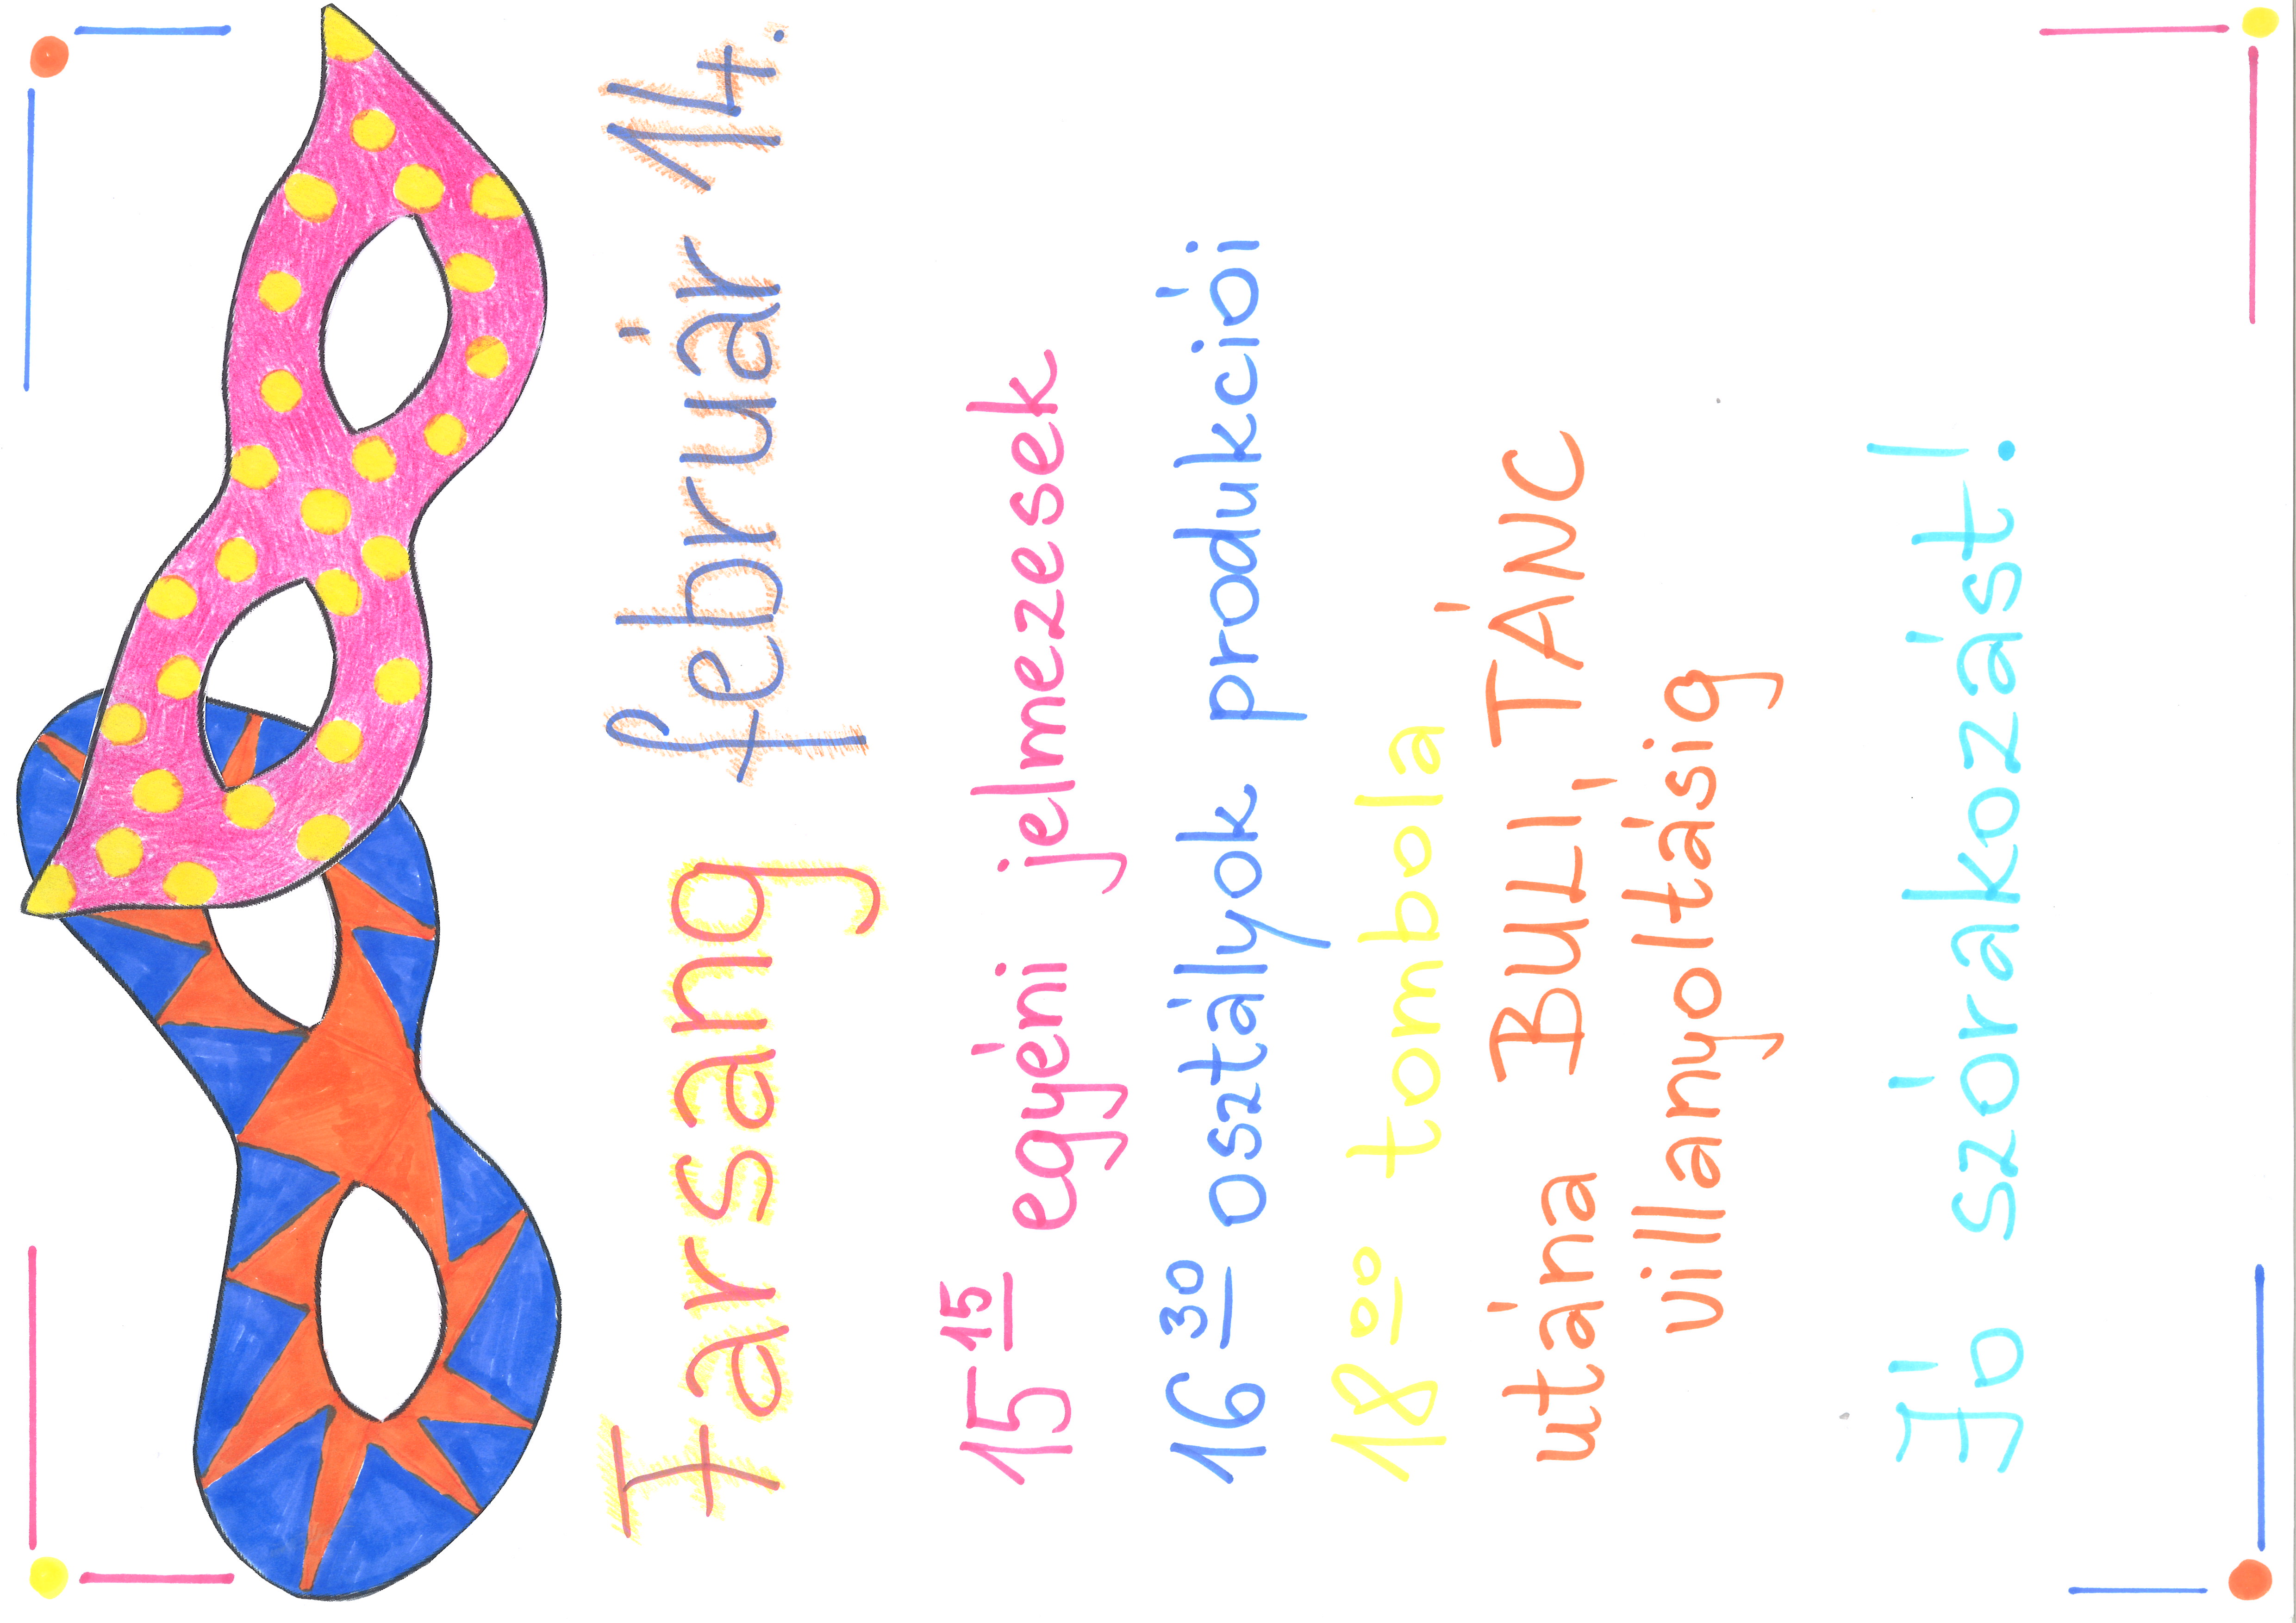 Farsang február 14.
15 15 egyéni jelmezesek
16 30 osztályok produkciói
18 00 tombola
utána BULI, TÁNC
villanyoltásig
Jó szórakozást!